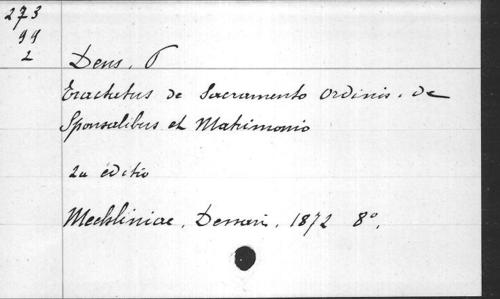 273
99
2
Dens, P
Tractatus de Sacramento Ordinis. de
Sponsalibus et Matrimonio
2a éditio
Mechliniae, Dessain, 1872 8°.